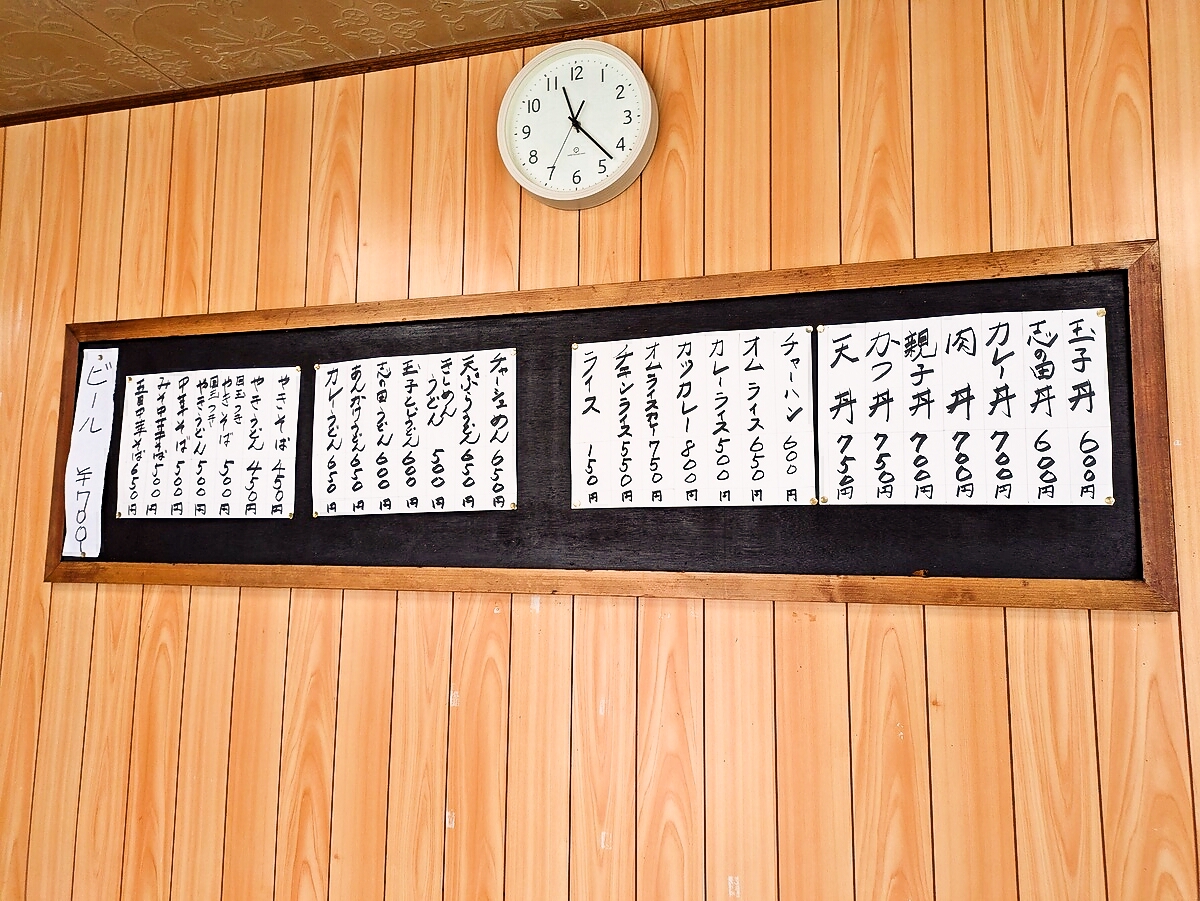 12
1
2
3
4
5
6
7
8
9
10
11
玉子丹 600円
志の田丹 600円
カレー丹 700円
肉丹 700円
親子丹 700円
かつ丹 750円
天丹 750円
チャーハン 600円
オムライス 650円
カレーライス 500円
カツカレー 800円
オムライスカレー 750円
チキンライス 550円
ライス 150円
チャーシューめん 650円
天ぷらうどん 650円
きしめん
うどん 500円
玉子とじうどん 600円
志の田うどん 600円
あんかけうどん 650円
カレーうどん 650円
やきそば 450円
やきうどん 450円
玉子つき
やきそば 500円
玉子つき
やきうどん 500円
中華そば 500円
みそ中華そば 500円
五目中華そば 650円
ビール ¥700